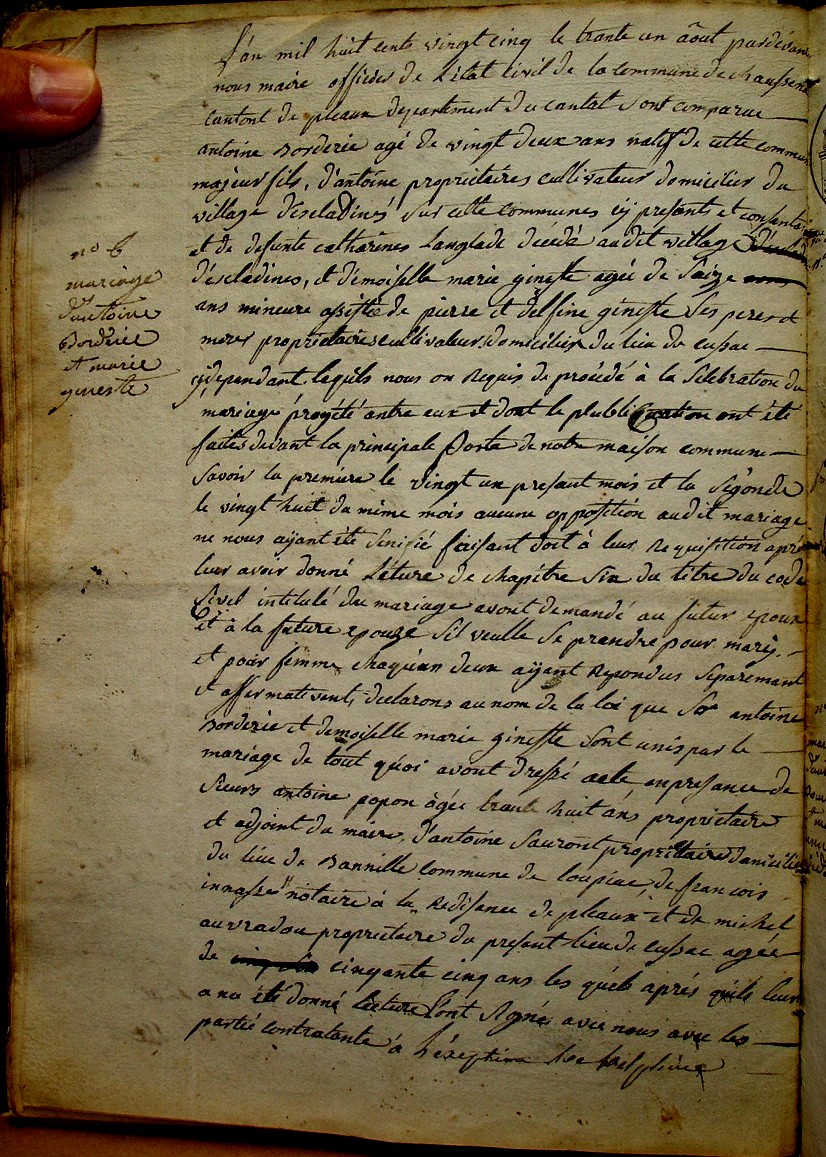 L'an mil huit cents vingt cinq le trante un âout pardevant
nous maire officier de L'état Civil de la Commune de Chaussena
Cantont de pleaux departement du cantal sont comparue
antoine Borderie agé de vingt deux ans natif de cette commune
majeur fils, d'antoine propriétaires cultivateur domicilier du
village d'escladines sur cette Communes cy presents et consenta
et de defunte catharines Langlade décédé audit village
d'escladines, et démoiselle marie gineste agée de Saize
ans mineure assistée de pierre et delfine gineste Ses peres et
meres propriétaires cultivateurs domicilier du lieu de cussac
cydependant lequels nous on Requis de procédé à la Sélébration du
mariage projété antre eux et dont le plublication ont été
faites devant la principale Porte de notre maison commune
Savoir la premiere le vingt un présant mois et la Segonde
le vingt huit du même mois aucune opposition audit mariage
ne nous ayant été Sinifié faisant doit à leur Requisition aprè
leur avoir donné Léture de chapitre Six du titre du code
Sivil intitulé du mariage avont demandé au futur epoux
et à la future epouze S'il veulle Se prandre pour mary,
et pour femme chaquun deux ayant Repondus Separemant
et affermativent, declarons au nom de la loi que Sor antoine
Borderie et demoiselle marie gineste Sont unis par le
mariage de tout quoi avont dressé acte, enpresance de
Sieurs antoine popon âgée trante huit ans proprietaire
et adjoint du maire, d'antoine Sauront propriétaire domicilié
du lieu de Bannille Commune de Loupiac, de francois
notaire à la Redisance de pleaux et de michel
auvradou proprietaire du presant lieu de cussac agée
de cinquante cinq ans les quels aprés quils leur
a na été donné Lecture Sont Signés avec nous avec les
partie contratante à L'éxeption de
n° 6
mariage
d'antoine
Borderie
et marie
gineste